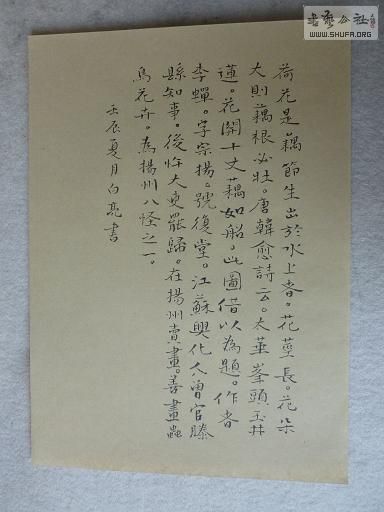 荷花是藕節生出於水上者。花莖長。花朵
大則藕根必壯。唐韓愈詩云。太華峯頭玉井
蓮。花開十丈藕如船。此圖借以為題。作者
李蟬。字宗揚。號復堂。江蘇興化人曾官滕
縣知事。後忤大吏罷歸。在揚州賣畫。善畫蟲
鳥花卉。為揚州八怪之一。
壬辰夏月白亮書
書藝公社
WWW.SHUFA.ORG